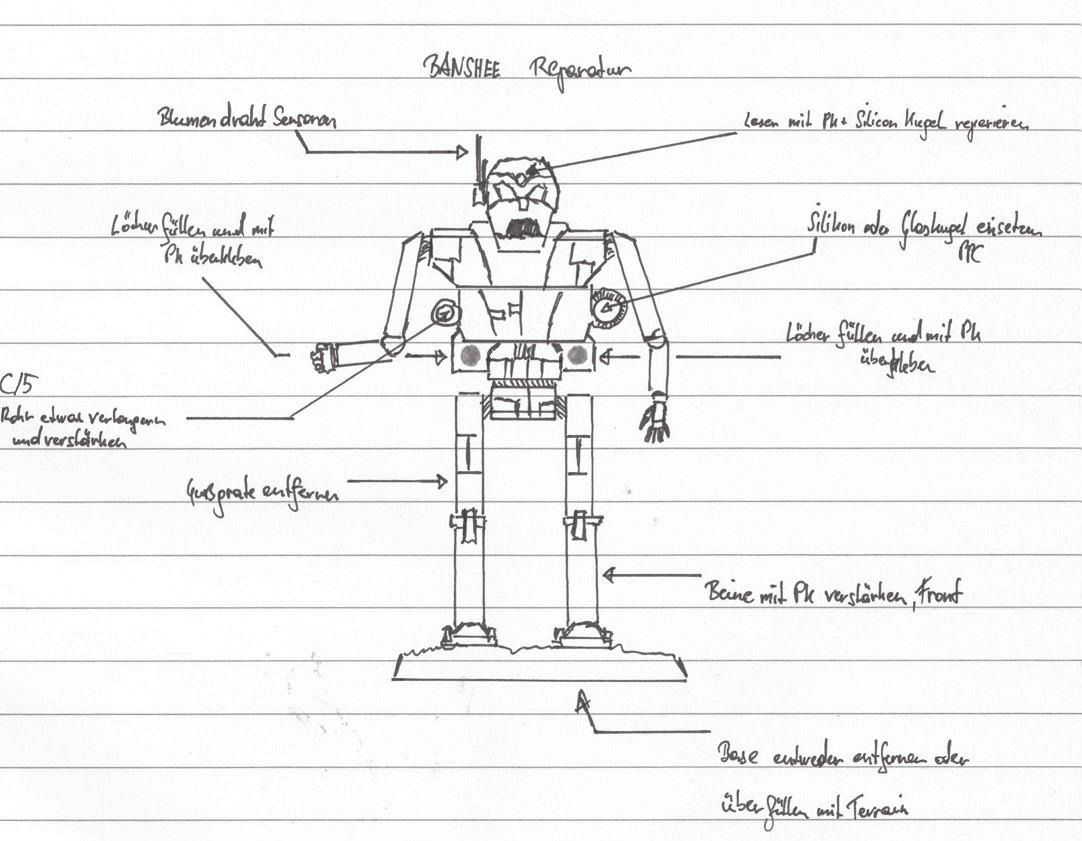 BANSHEE Reparatur
Blumendraht Sensoren
Laser mit Pk + Silicon Kugel reparieren
Löcher füllen und mit
Pk überkleben
Silikon oder Glaskugel einsetzen
PPC
Löcher füllen und mit Pk
überkleben
C/5
Rohr etwas verlängern
und verstärken
Gußgrate entfernen
Beine mit Pk verstärken, Front
Base entweder entfernen oder
überfüllen mit Terrain